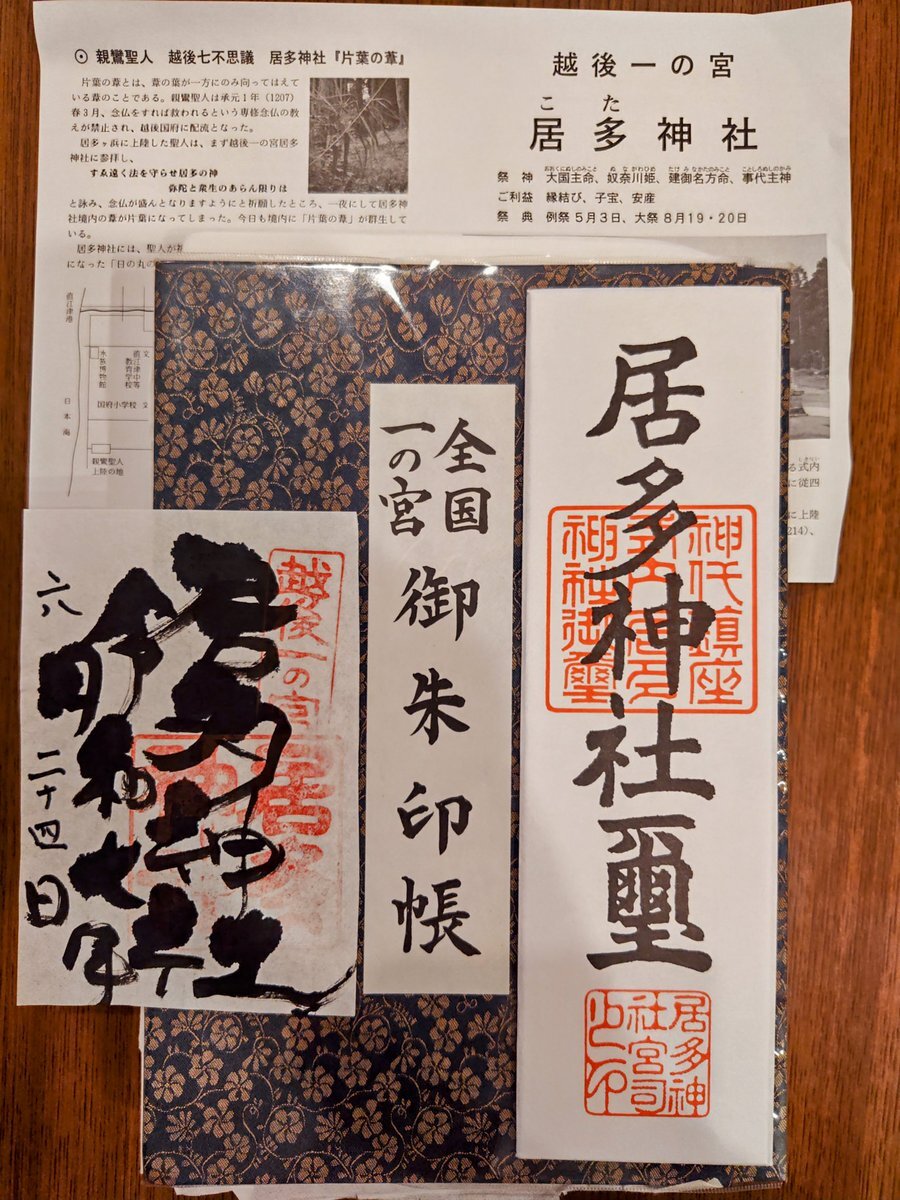 ⊙ 親鸞聖人 越後七不思議 居多神社『片葉の葦』
片葉の葦とは、葦の葉が一方にのみ向ってはえて
いる葦のことである。親鸞聖人は承元1年(1207)
春3月、念仏をすれば救われるという専修念仏の教
えが禁止され、越後国府に配流となった。
居多ヶ浜に上陸した聖人は、まず越後一の宮居多
神社に参拝し、
すゑ遠く法を守らせ居多の神
弥陀と衆生のあらん限りは
と詠み、念仏が盛んとなりますようにと祈願したところ、一夜にして居多神
社境内の葦が片葉になってしまった。今日も境内に「片葉の葦」が群生して
いる。
居多神社には、聖人が祈
になった「日の丸の
直江津港
日本海
水族博物館
直江津中等教育学校
文
国府小学校 文
親鸞聖人
上陸の地
越後一の宮
こた
居多神社
祭神 大国主命、奴奈川姫、建御名方命、事代主神
おおくにぬしのみこと ぬながわひめ たけみなかたのみこと ことしろぬしのかみ
ご利益 縁結び、子宝、安産
祭典 例祭5月3日、大祭8月19・20日
しきない
る式内
に従四
に上陸
214)、
居多神社璽
神代鎮座
式内居多
神社御璽
居多神
社宮司
之印
全国
一の宮
御朱印帳
越後一の宮
居多神社
令和七年
六月
二十四日